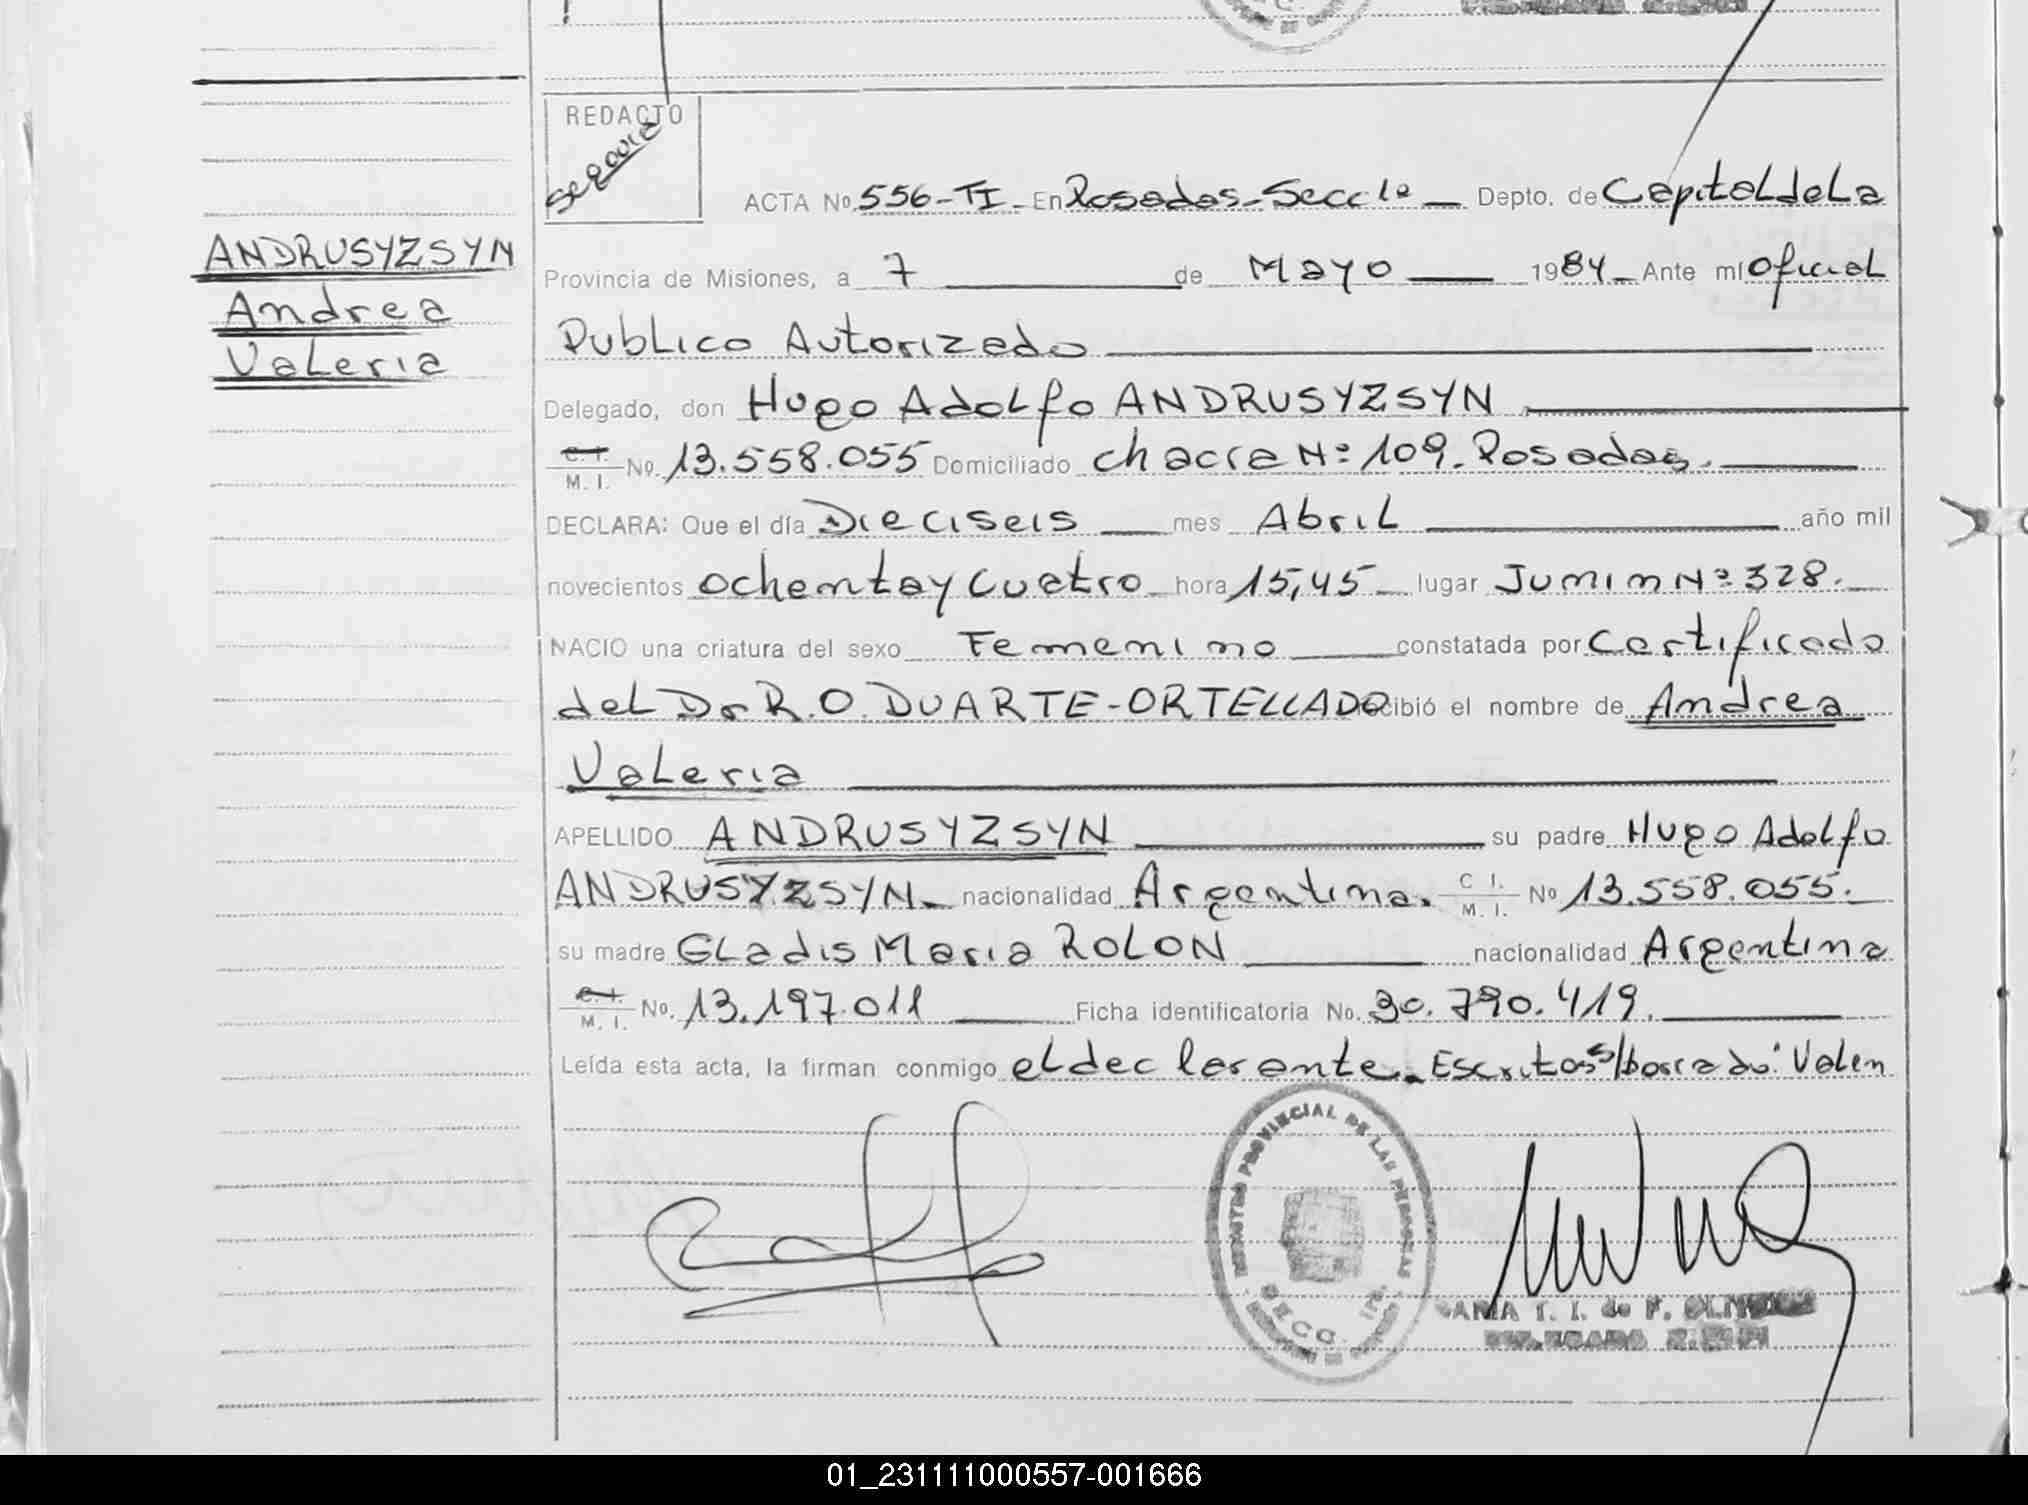 REDACTO
ACTA No. 556-TI- En Posadas-Secc 1ª Depto. de Capital de La
ANDRUSYZSYN
Andrea
Valeria
Provincia de Misiones, a 7 de Mayo 1984 Ante mí Oficial
Publico Autorizado
Delegado, don Hugo Adolfo ANDRUSYZSYN
C. I.
M. I. No. 13.558.055 Domiciliado chacra Nº 109. Posadas.
DECLARA: Que el día Dieciseis mes Abril año mil
novecientos ochenta y Cuatro hora 15,45 lugar Junin Nº 328.
NACIO una criatura del sexo Femenino constatada por Certificado
del Dr R.O. DUARTE-ORTELLADO recibió el nombre de Andrea
Valeria
APELLIDO ANDRUSYZSYN su padre Hugo Adolfo
ANDRUSYZSYN nacionalidad Argentina. C. I.
M. I. No 13.558.055.
su madre GLadis Maria ROLON nacionalidad Argentina
C. I.
M. I. No. 13.197.011 Ficha identificatoria No. 30.790.419.
Leída esta acta, la firman conmigo el declarante. Escritos s/borrado: Valen
REGISTRO PROVINCIAL DE LAS PERSONAS
SECC. 1ra.
01_231111000557-001666